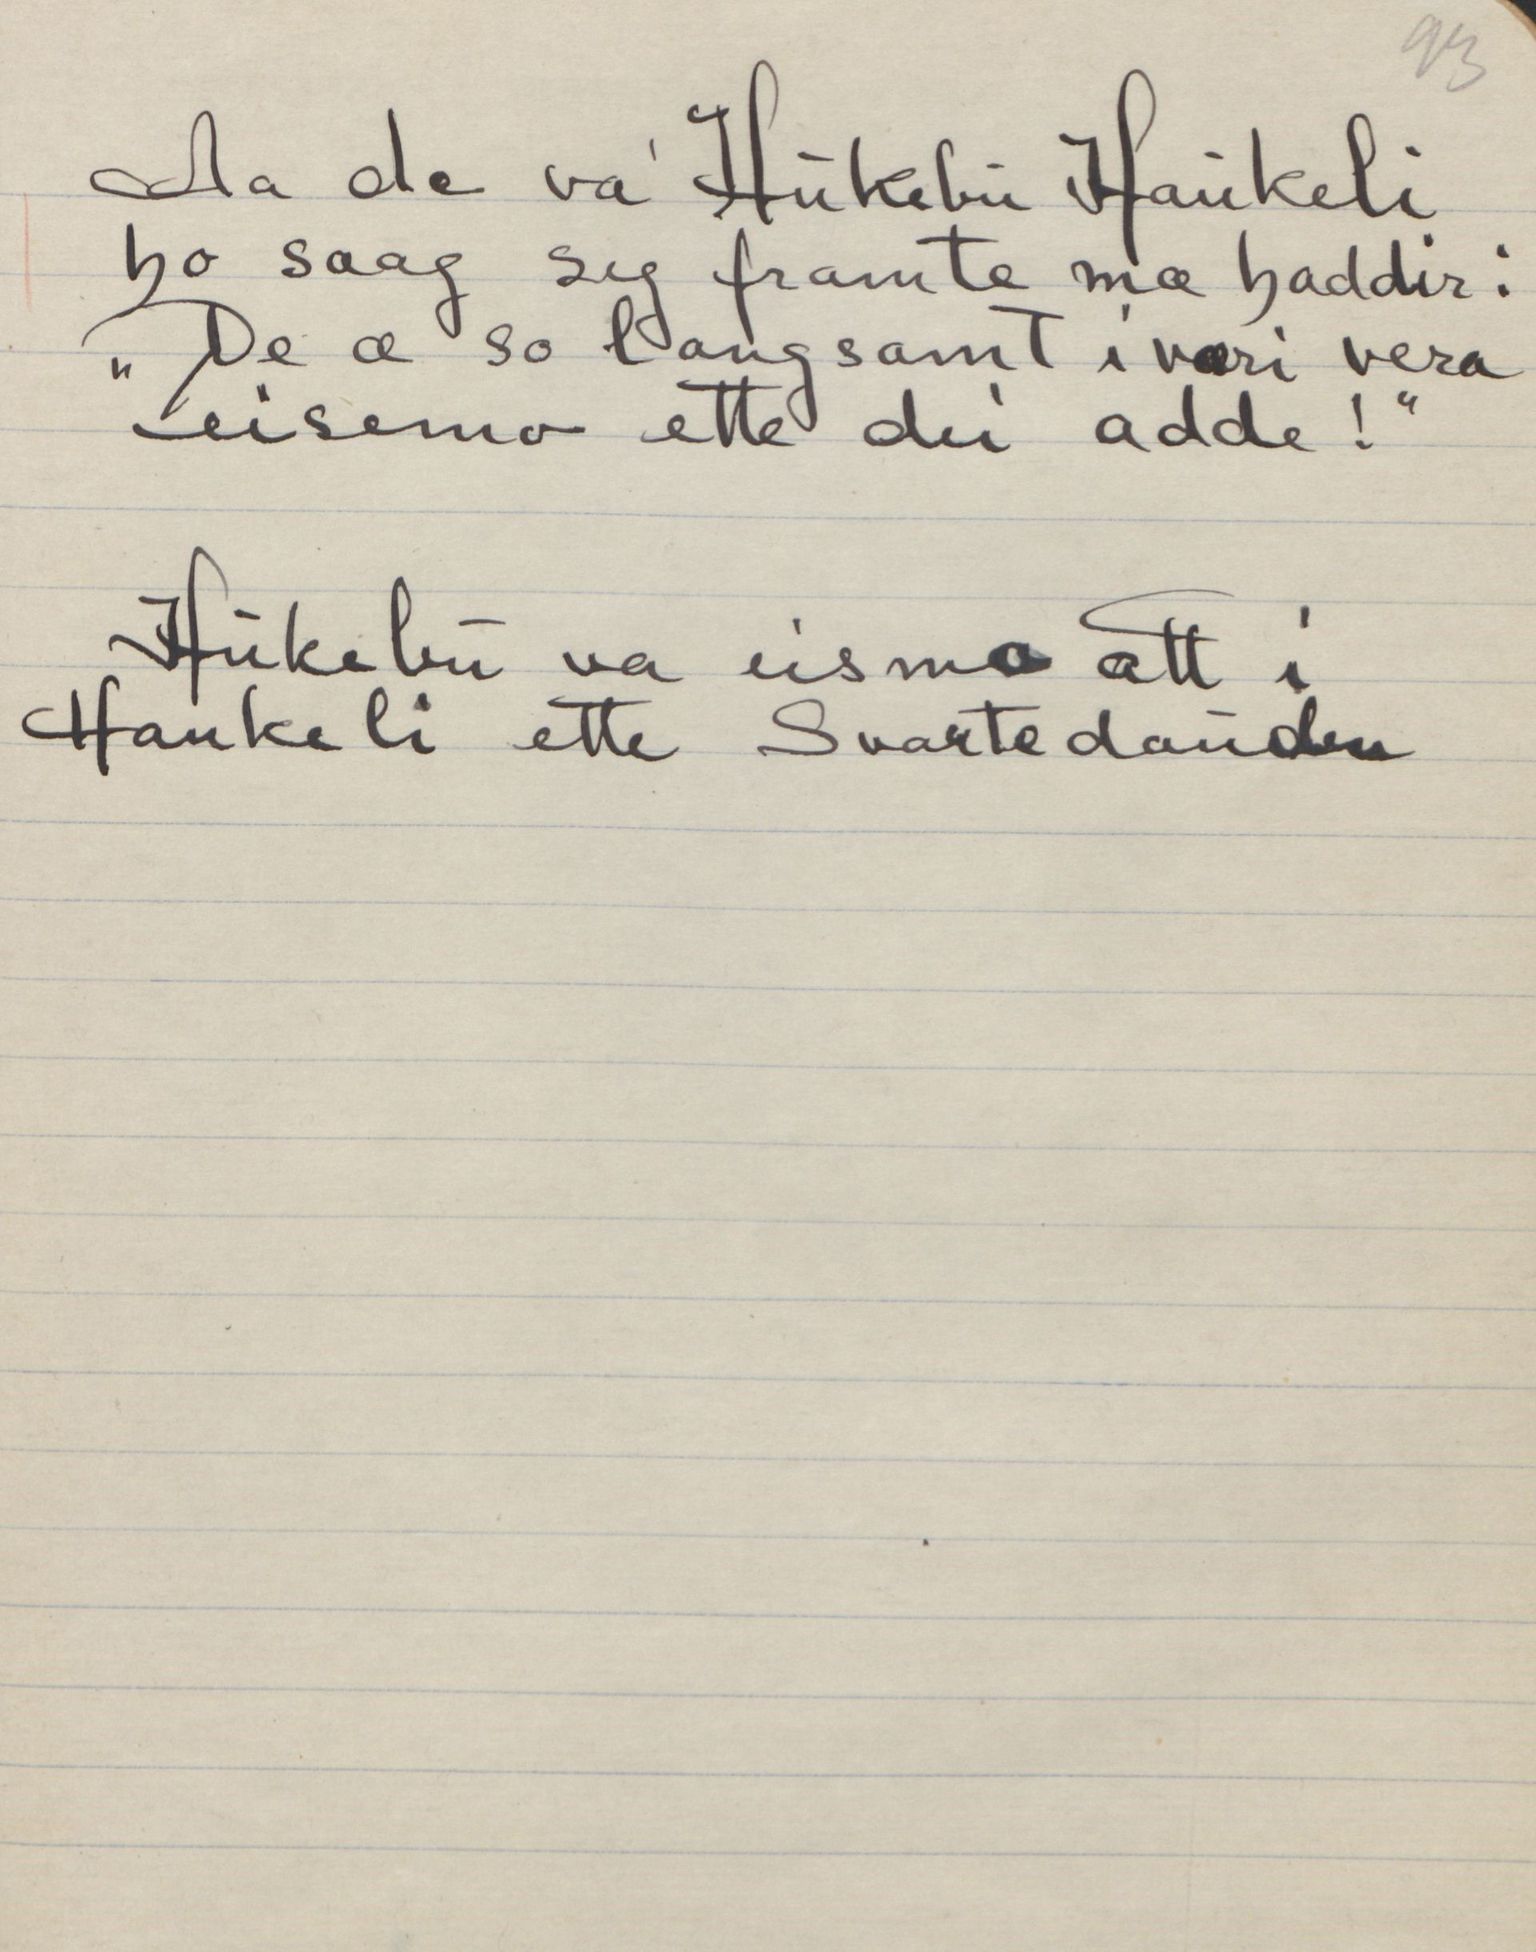 93
Aa de va' Hukebu Haukeli
ho saag seg framte mæ haddir:
„De æ so langsamt i væri vera
eisemo ette dei adde!"
Hukebu va eismo att i
Haukeli ette Svartedauden